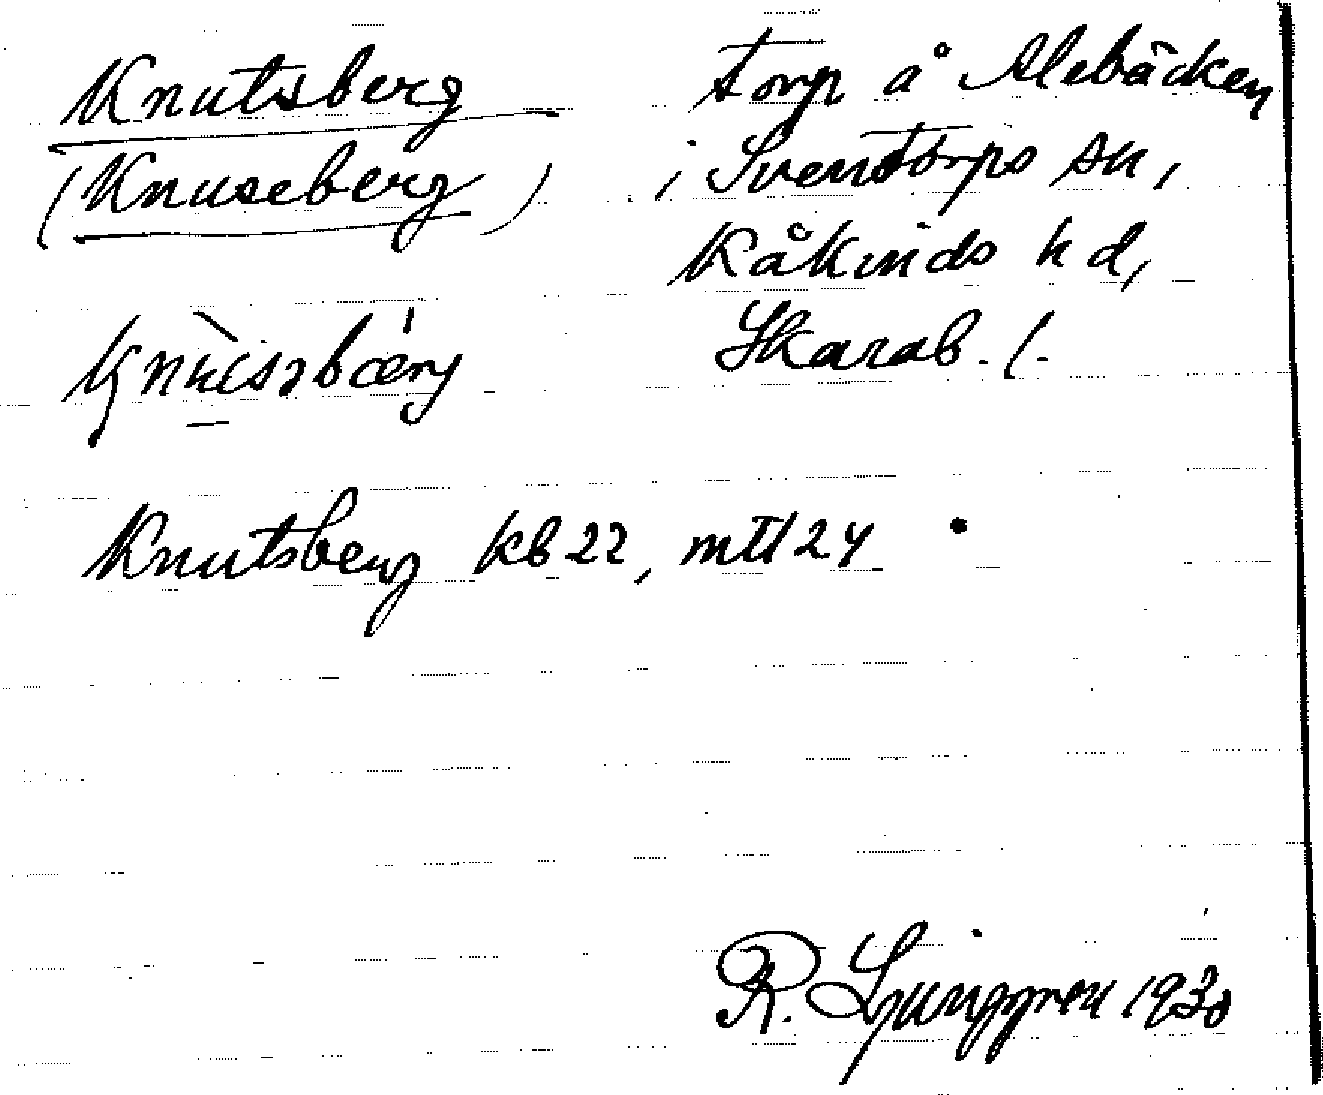 Knutsberg
(Knuseberg)
torp å Alebäcken
i Sventorps sn,
Kåkinds hd,
Skarab. l.
Knutsberg kb 22, mtl 24
R. Ljunggren 1930